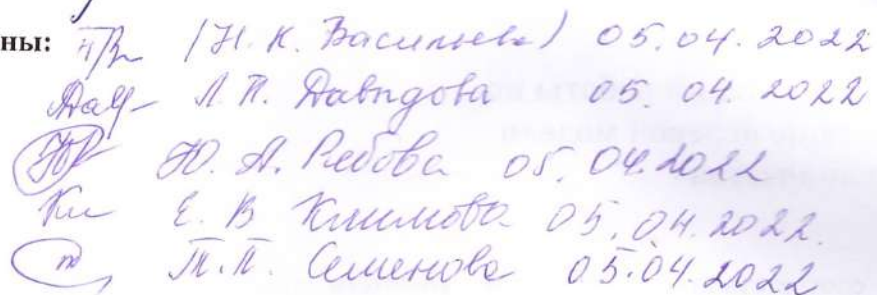 ны: (Н. К. Васильева) 05.04.2022
Л. П. Давыдова 05.04.2022
Ю. А. Рябова 05.04.2022
Е. В Климова 05.04.2022.
Т. П. Семенова 05.04.2022